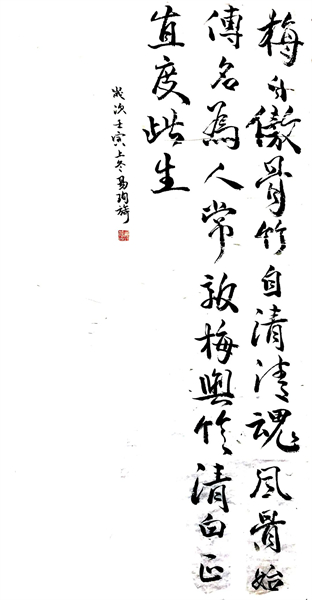 梅為傲骨竹自清清魂風骨始
傳名為人常效梅與竹清白正
直度此生
歲次壬寅上冬易珣旖